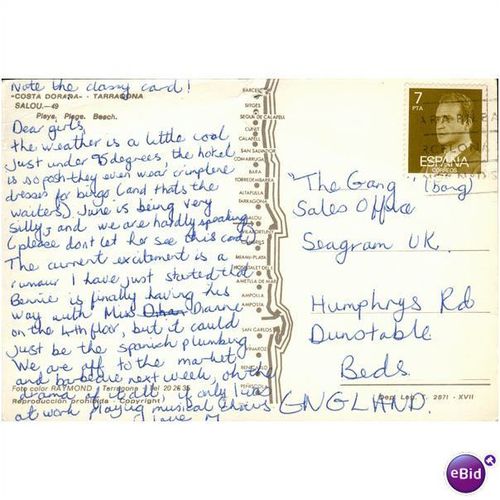 Note the classy card!
"COSTA DORADA" - TARRAGONA
SALOU.-49
Playa. Plage. Beach.
Dear girls,
the weather is a little cool
just under 95 degrees, the hotel
is so posh they even wear crimplene
dresses for bingo (and thats the
waiters). June is being very
silly, and we are hardly speaking
(please dont let her see this card)
The current excitement is a
rumour I have just started that
Bennie is finally having his
way with Miss Dianne
on the 4th flor, but it could
just be the spanish plumbing
We are off to the market
and barbecue next week, oh the
drama of it all, if only I was
at work playing musical chairs
love M
Foto color RAYMOND - Tarragona Tel 20 26 35
Reproducción prohibida - Copyright
BARCELONA
SITGES
SEGUR DE CALAFELL
CUNIT
CALAFELL
SAN SALVADOR
COMARRUGA
BARA
TORREDEMBARRA
ALTAFULLA
TARRAGONA
SALOU
MIAMI-PLAYA
HOSPITALET DEL I.
AMETLLA DE MAR
AMPOLLA
AMPOSTA
SAN CARLOS
VINAROZ
BENICARLO
PEÑISCOLA
7
PTA
ESPAÑA
CORREOS
"The Gang (bang)
Sales Office
Seagram UK.
Humphrys Rd
Dunstable
Beds.
ENGLAND.
Dep. Leg. T. 2871 - XVII
eBid